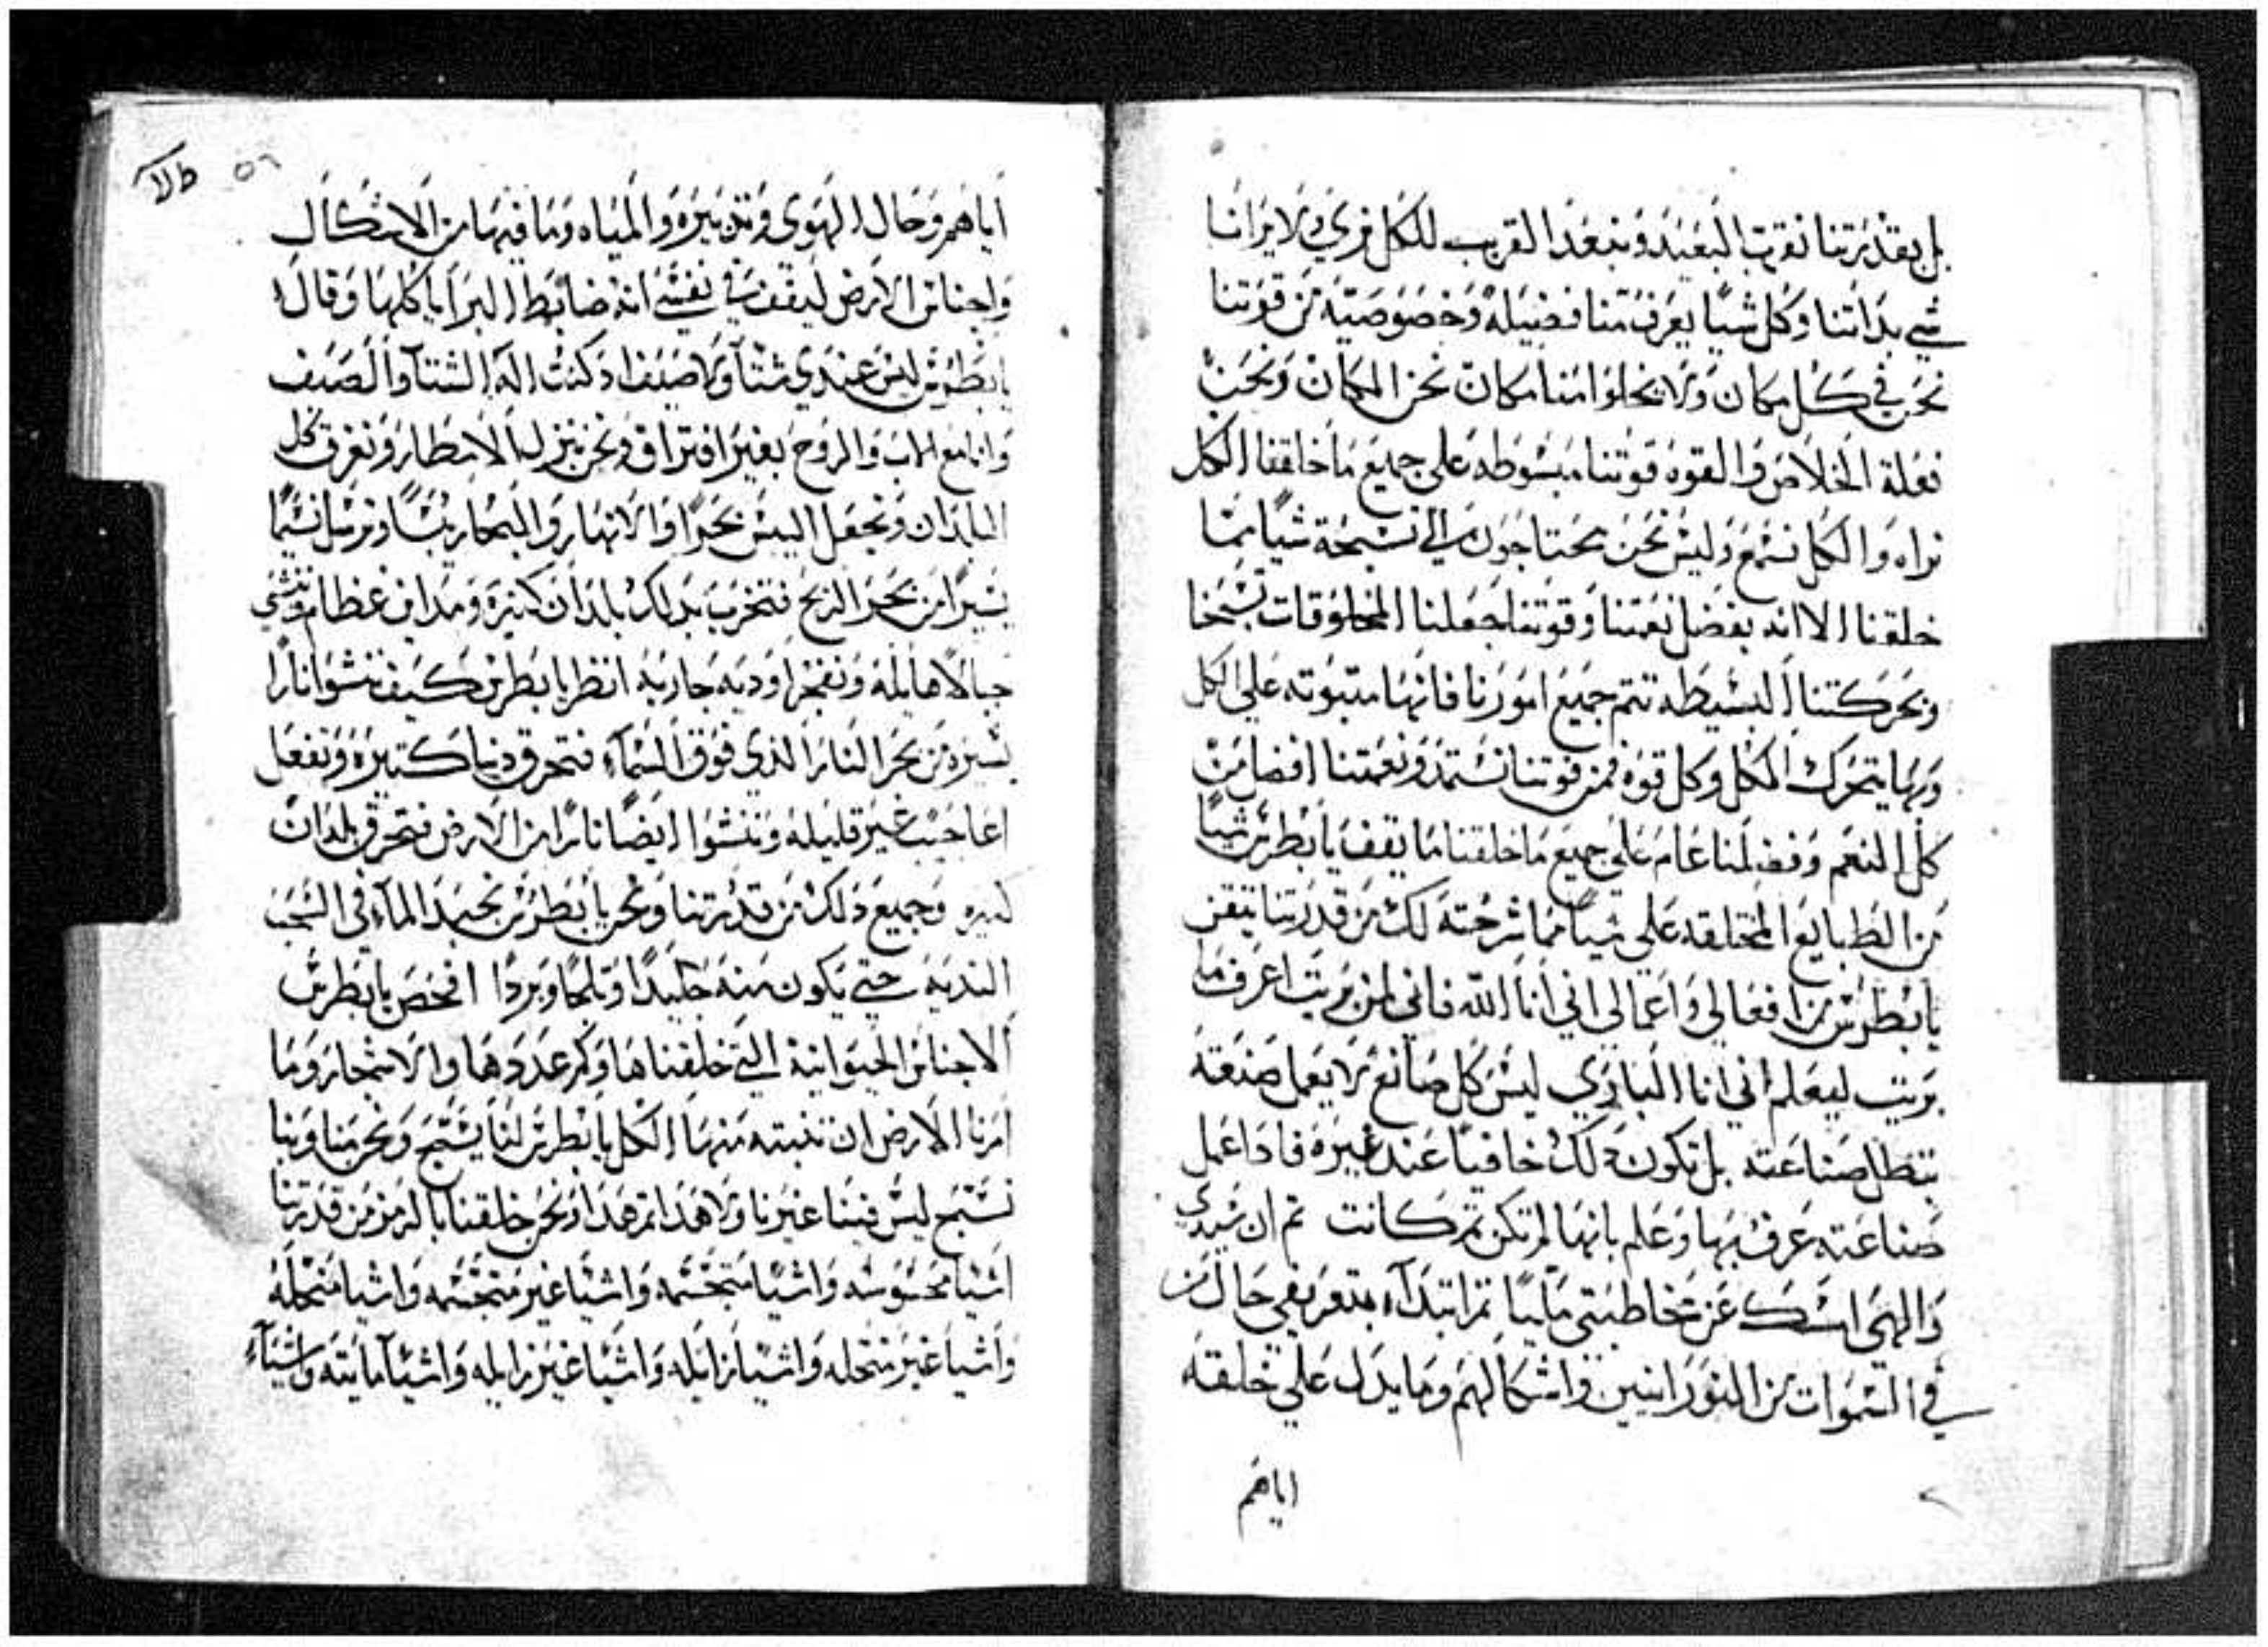 بل بقدرتنا نقرب البعيد ونبعد القريب للكل نري ولا يرانا
شي بداتنا وكل شيا يعرف منا فضيله وخصوصيته من قوتنا
نحن في كل مكان ولا يخلوا منا مكان نحن المكان ونحن
فعلة الخلاص والقوه قوتنا مبسوطه علي جميع ما خلقنا الكل
نراه والكل نسمع وليس نحن محتاجون الي تسبحة شيا مما
خلقنا الا انه بفضل نعمتنا وقوتنا جعلنا المخلوقات تسبحنا
وبحركتنا البسيطه تتم جميع امورنا فانها مثبوته علي الكل
وبها يتحرك الكل وكل قوه فمن قوتنا تستمد ونعمتنا افضل من
كل النعم وفضلنا عام علي جميع ما خلقنا ما يقف يا بطرس شيا
من الطبايع المختلقه علي شيا مما شرحته لك من قدرتنا تيقن
يا بطرس من افعالي واعمالي اني انا الله فاني لمن بريت اعرف ما
بريت ليعلم اني انا الباري ليس كل صانع لا يعمل صنعته
تبطل صناعته بل تكون دلك خافيا عند غيره فادا عمل
صناعته عرف بها وعلم بانها لم تكن ثم كانت ثم ان سيدي
والهي امسك عن مخاطبتي مليا ثم ابتداء بتعريفي حال من
في السموات من النورانيين واشكالهم وما يدل علي خلقته
اياهم
٥٦ طلا
اياهم وحال الهوي وتدبيره والمياه وما فيها من الاشكال
واجناس الارض ليقف في نفسي انه ضابط البرايا كلها وقال
يا بطرس ليس عندي شتا ولا صيف اد كنت اله الشتا والصيف
وانا مع الاب والروح بغير افتراق ونحن ننزل الامطار ونغرق كل
البلدان ونجعل اليبس بحرا والانهار والبحار يبسا ونرسل نسيما
يسيرا من بحر الريح فتخرب بدلك بلدان كثيرة ومداين عظام وننشي
جبالا هايله ونفجر اوديه جاريه انظر يا بطرس كيف ننشوا نارا
يسيره من بحر النار الذي فوق السماء فتحرق دنيا كثيره ونفعل
اعاجيب غير قليله وننشوا ايضا نارا من الارض فتحرق بلدان
كثيره وجميع دلك من قدرتنا ونحن يا بطرس نجمد الماء في السحب
النديه حتي يكون منه جليدا وثلجا وبردا افحص يا بطرس
الاجناس الحيوانية التي خلقناها وكم عددها والاشجار وما
امرنا الارض ان تنبته منها الكل يا بطرس لنا يسبح ونحن منا وبنا
نسبح ليس فينا غيرنا ولا هدا ثم هدا ونحن خلقنا بالرمز من قدرتنا
اشيا محسوسه واشيا متجسمه واشيا غير متجسمه واشيا متحله
واشيا غير متحله واشيا زايله واشيا غير زايله واشيا مايته واشياء